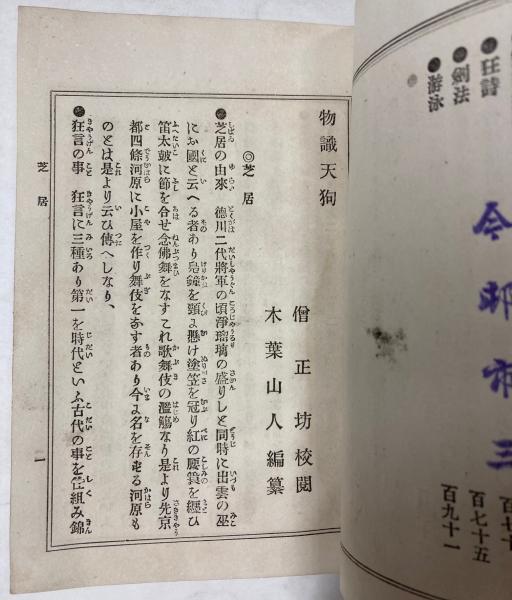 狂詩
劍法
游泳
百七十
百七十五
百九十一
物識天狗
僧正坊校閲
木葉山人編纂
◎芝居
芝居の由來 德川二代將軍の頃淨瑠璃の盛りしと同時に出雲の巫
にお國と云へる者あり鳧鐘を頸に懸け塗笠を冠り紅の腰簑を纒ひ
笛太皷に節を合せ念佛舞をなすこれ歌舞伎の濫觴なり是より先京
都四條河原に小屋を作り舞伎をなす者あり今に名を存せる河原も
のとは是より云ひ傳へしなり、
狂言の事 狂言に三種あり第一を時代といふ古代の事を仕組み錦
芝居
一